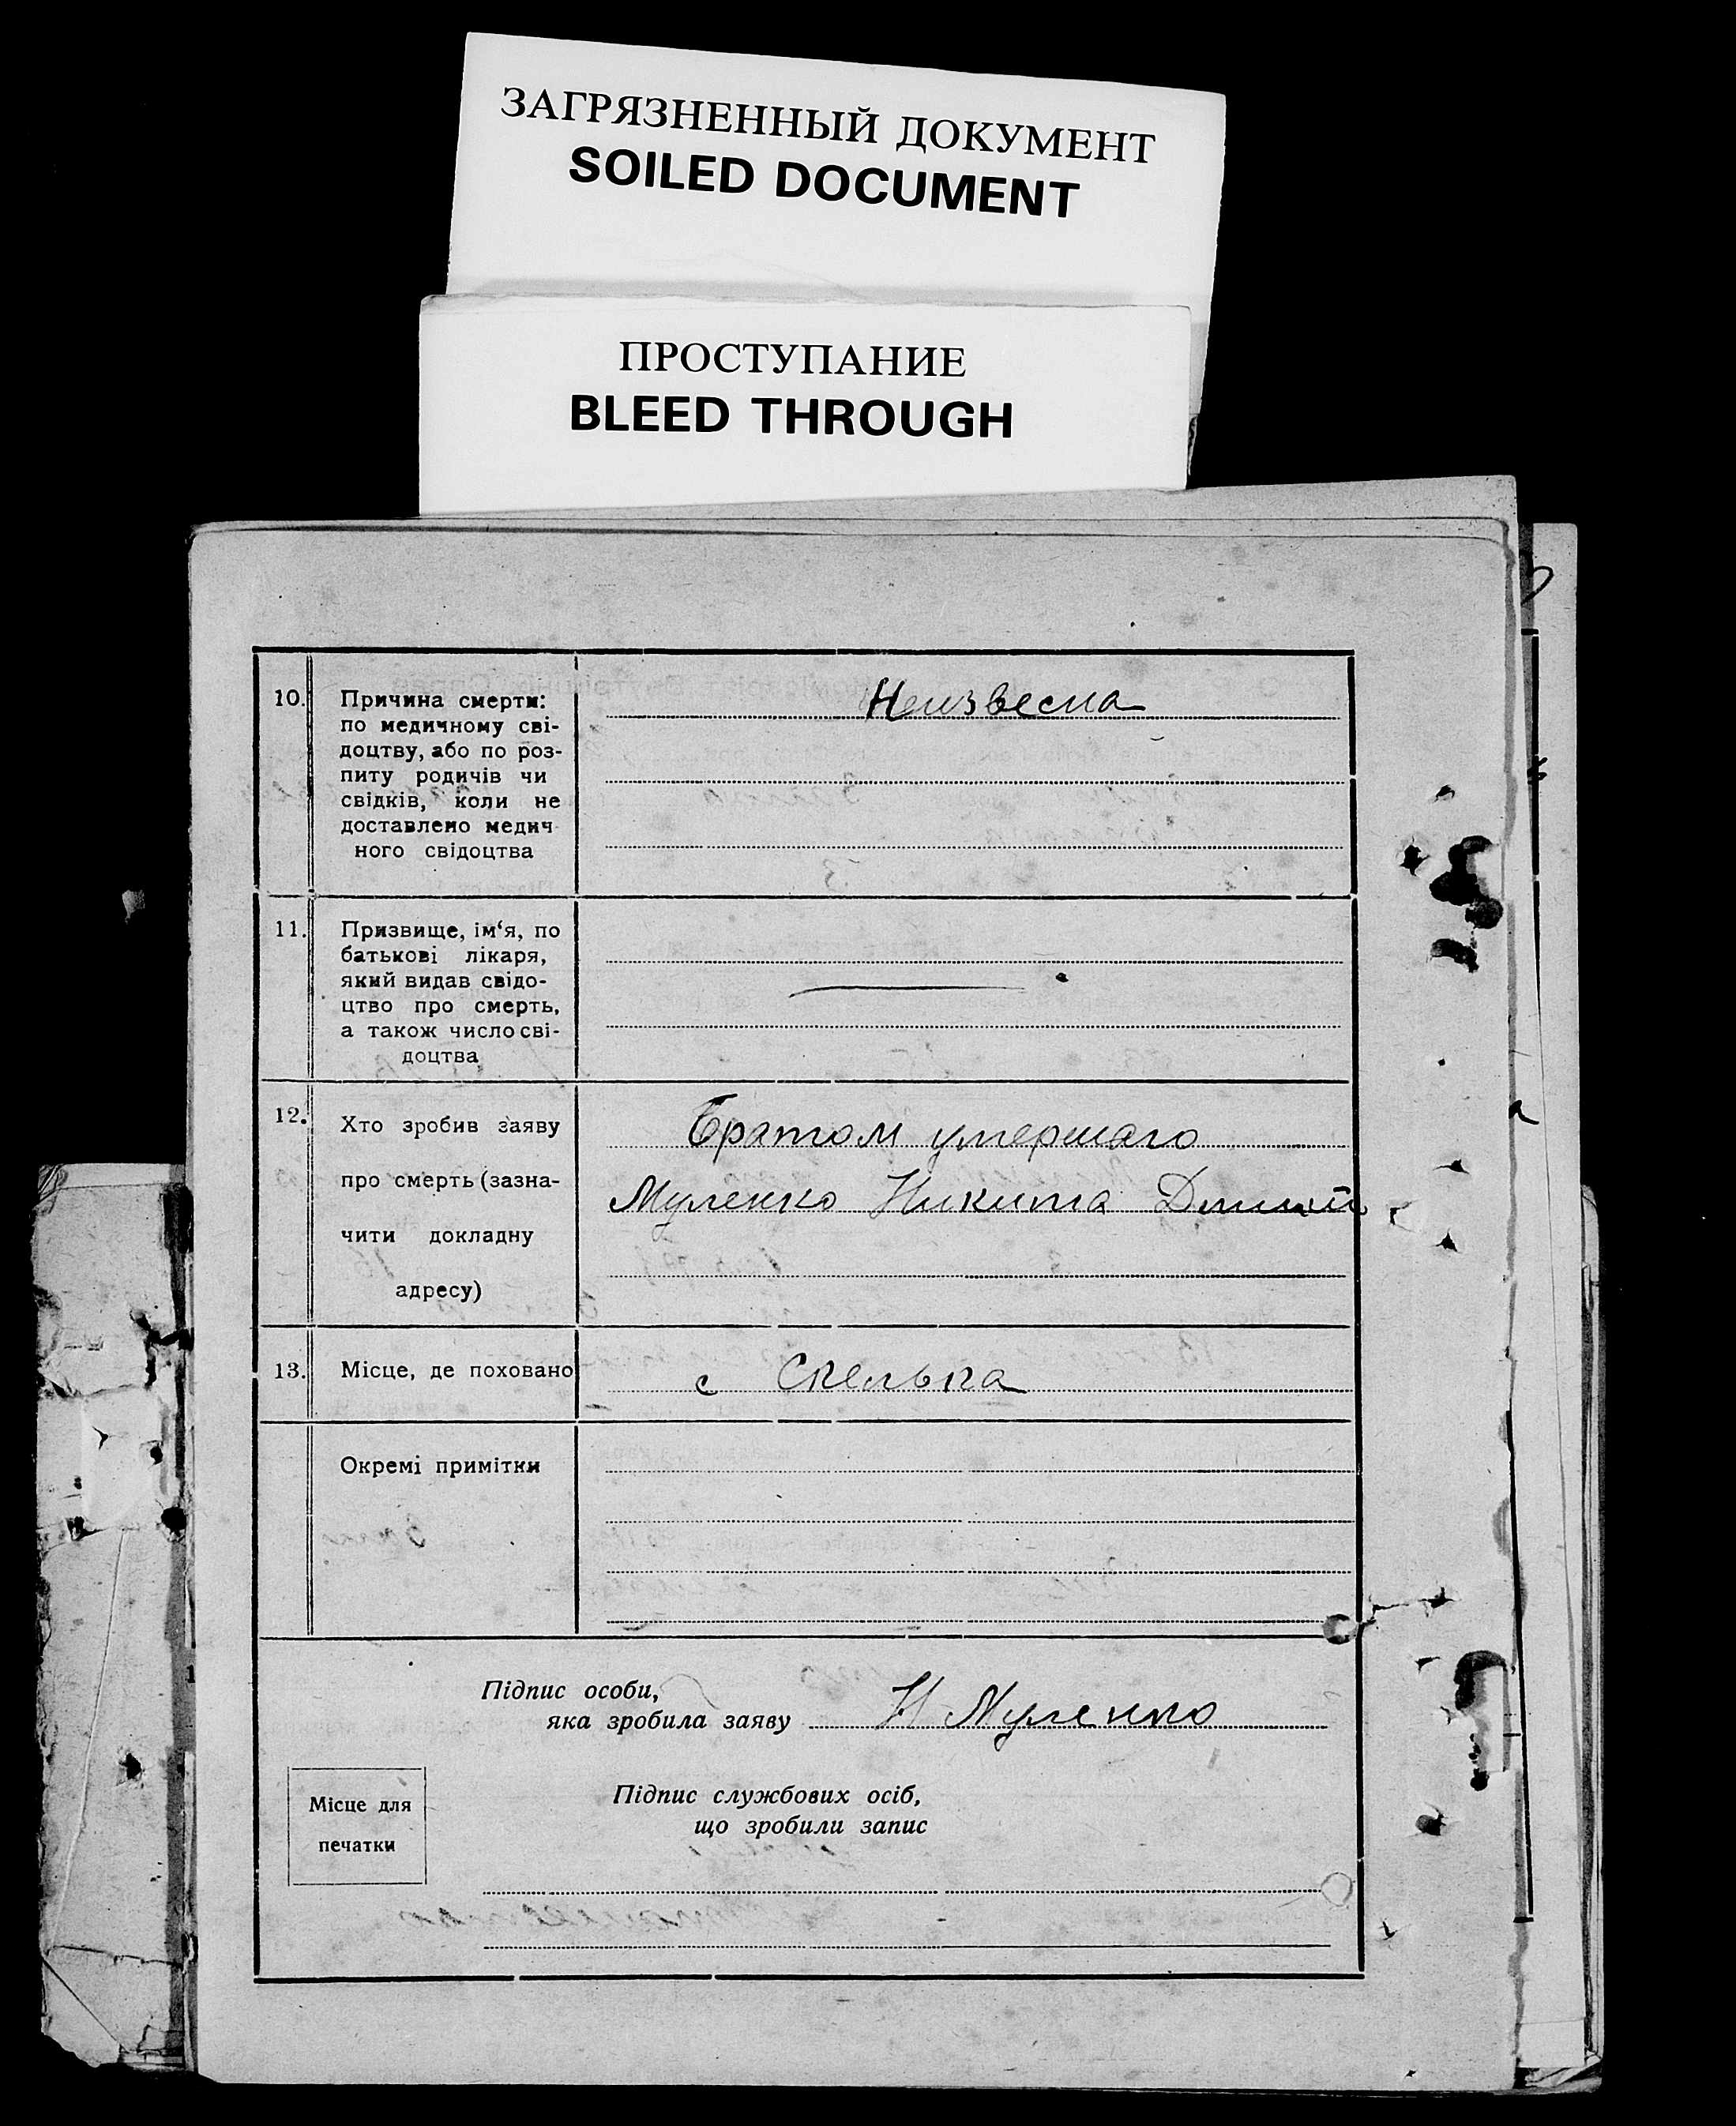 ЗАГРЯЗНЕННЫЙ ДОКУМЕНТ
SOILED DOCUMENT
ПРОСТУПАНИЕ
BLEED THROUGH
10. Причина смерти: Неизвесна
по медичному сві-
доцтву, або по роз-
питу родичів чи
свідків, коли не
доставлено медич
ного свідоцтва
11. Призвище, ім‘я, по
батькові лікаря,
який видав свідо-
цтво про смерть,
а також число сві-
доцтва
12. Хто зробив заяву Братом умершаго
про смерть (зазна- Муленко Никита Дмит
чити докладну
адресу)
13. Місце, де поховано с Скелька
Окремі примітки
Підпис особи,
яка зробила заяву Н Муленко
Місце для
печатки
Підпис службових осіб,
що зробили запис